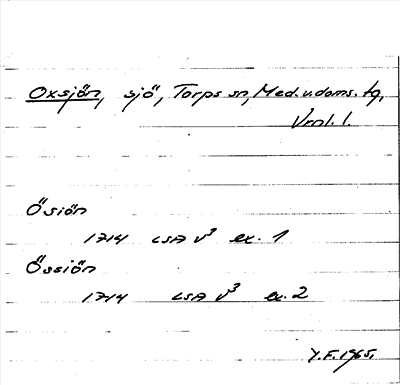 Oxsjön, sjö, Torps sn, Med.v.doms. tg,
Vrnl. l.
Ösiön
1714 LSA V³ ex. 1
Össiön
1714 LSA V³ ex. 2
Y.F. 1965.